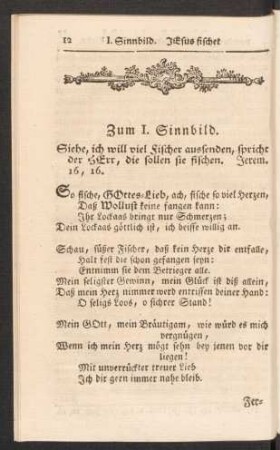 12 I. Sinnbild. JEsus fischet
Zum I. Sinnbild.
Siehe, ich will viel Fischer aussenden, spricht
der HErr, die sollen sie fischen. Jerem.
16, 16.
So fische, GOttes-Lieb, ach, fische so viel Herzen,
Daß Wollust keine fangen kann:
Ihr Lockaas bringt nur Schmerzen;
Dein Lockaas göttlich ist, ich beisse willig an.
Schau, süßer Fischer, daß kein Herze dir entfalle,
Halt fest die schon gefangen seyn:
Entnimm sie dem Betrieger alle.
Mein seligster Gewinn, mein Glück ist diß allein,
Daß mein Herz nimmer werd entrissen deiner Hand:
O seligs Loos, o sichrer Stand!
Mein GOtt, mein Bräutigam, wie würd es mich
vergnügen,
Wenn ich mein Herz mögt sehn bey jenen vor dir
liegen!
Mit unverrückter treuer Lieb
Ich dir gern immer nahe bleib.
Zer-